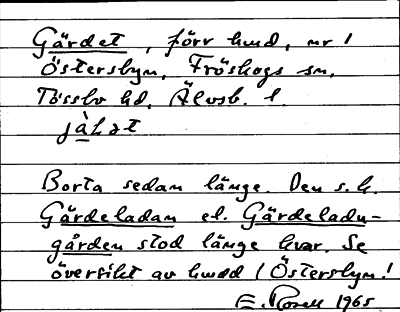 Gärdet, förr hmd, nr 1
Östersbyn, Fröskogs sn,
Tössbo hd, Älvsb. l.
jä̀ɫət
Borta sedan länge. Den s.k.
Gärdeladan el. Gärdeladu-
gården stod länge kvar. Se
översikt av hmdd i Östersbyn!
E. Rosell 1965